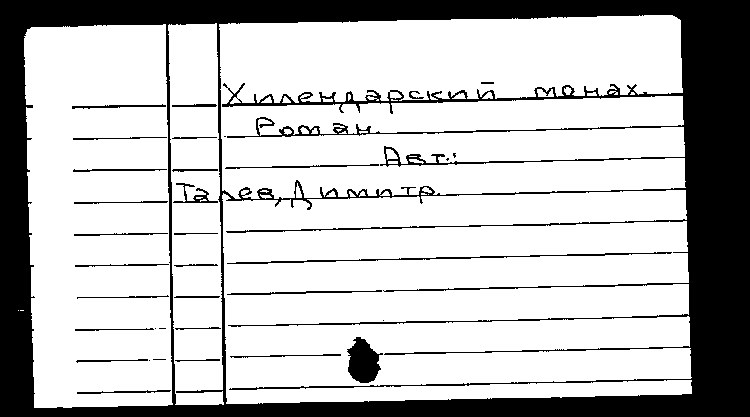 Хилендарский монах.
Роман.
Авт.:
Талев, Димитр.